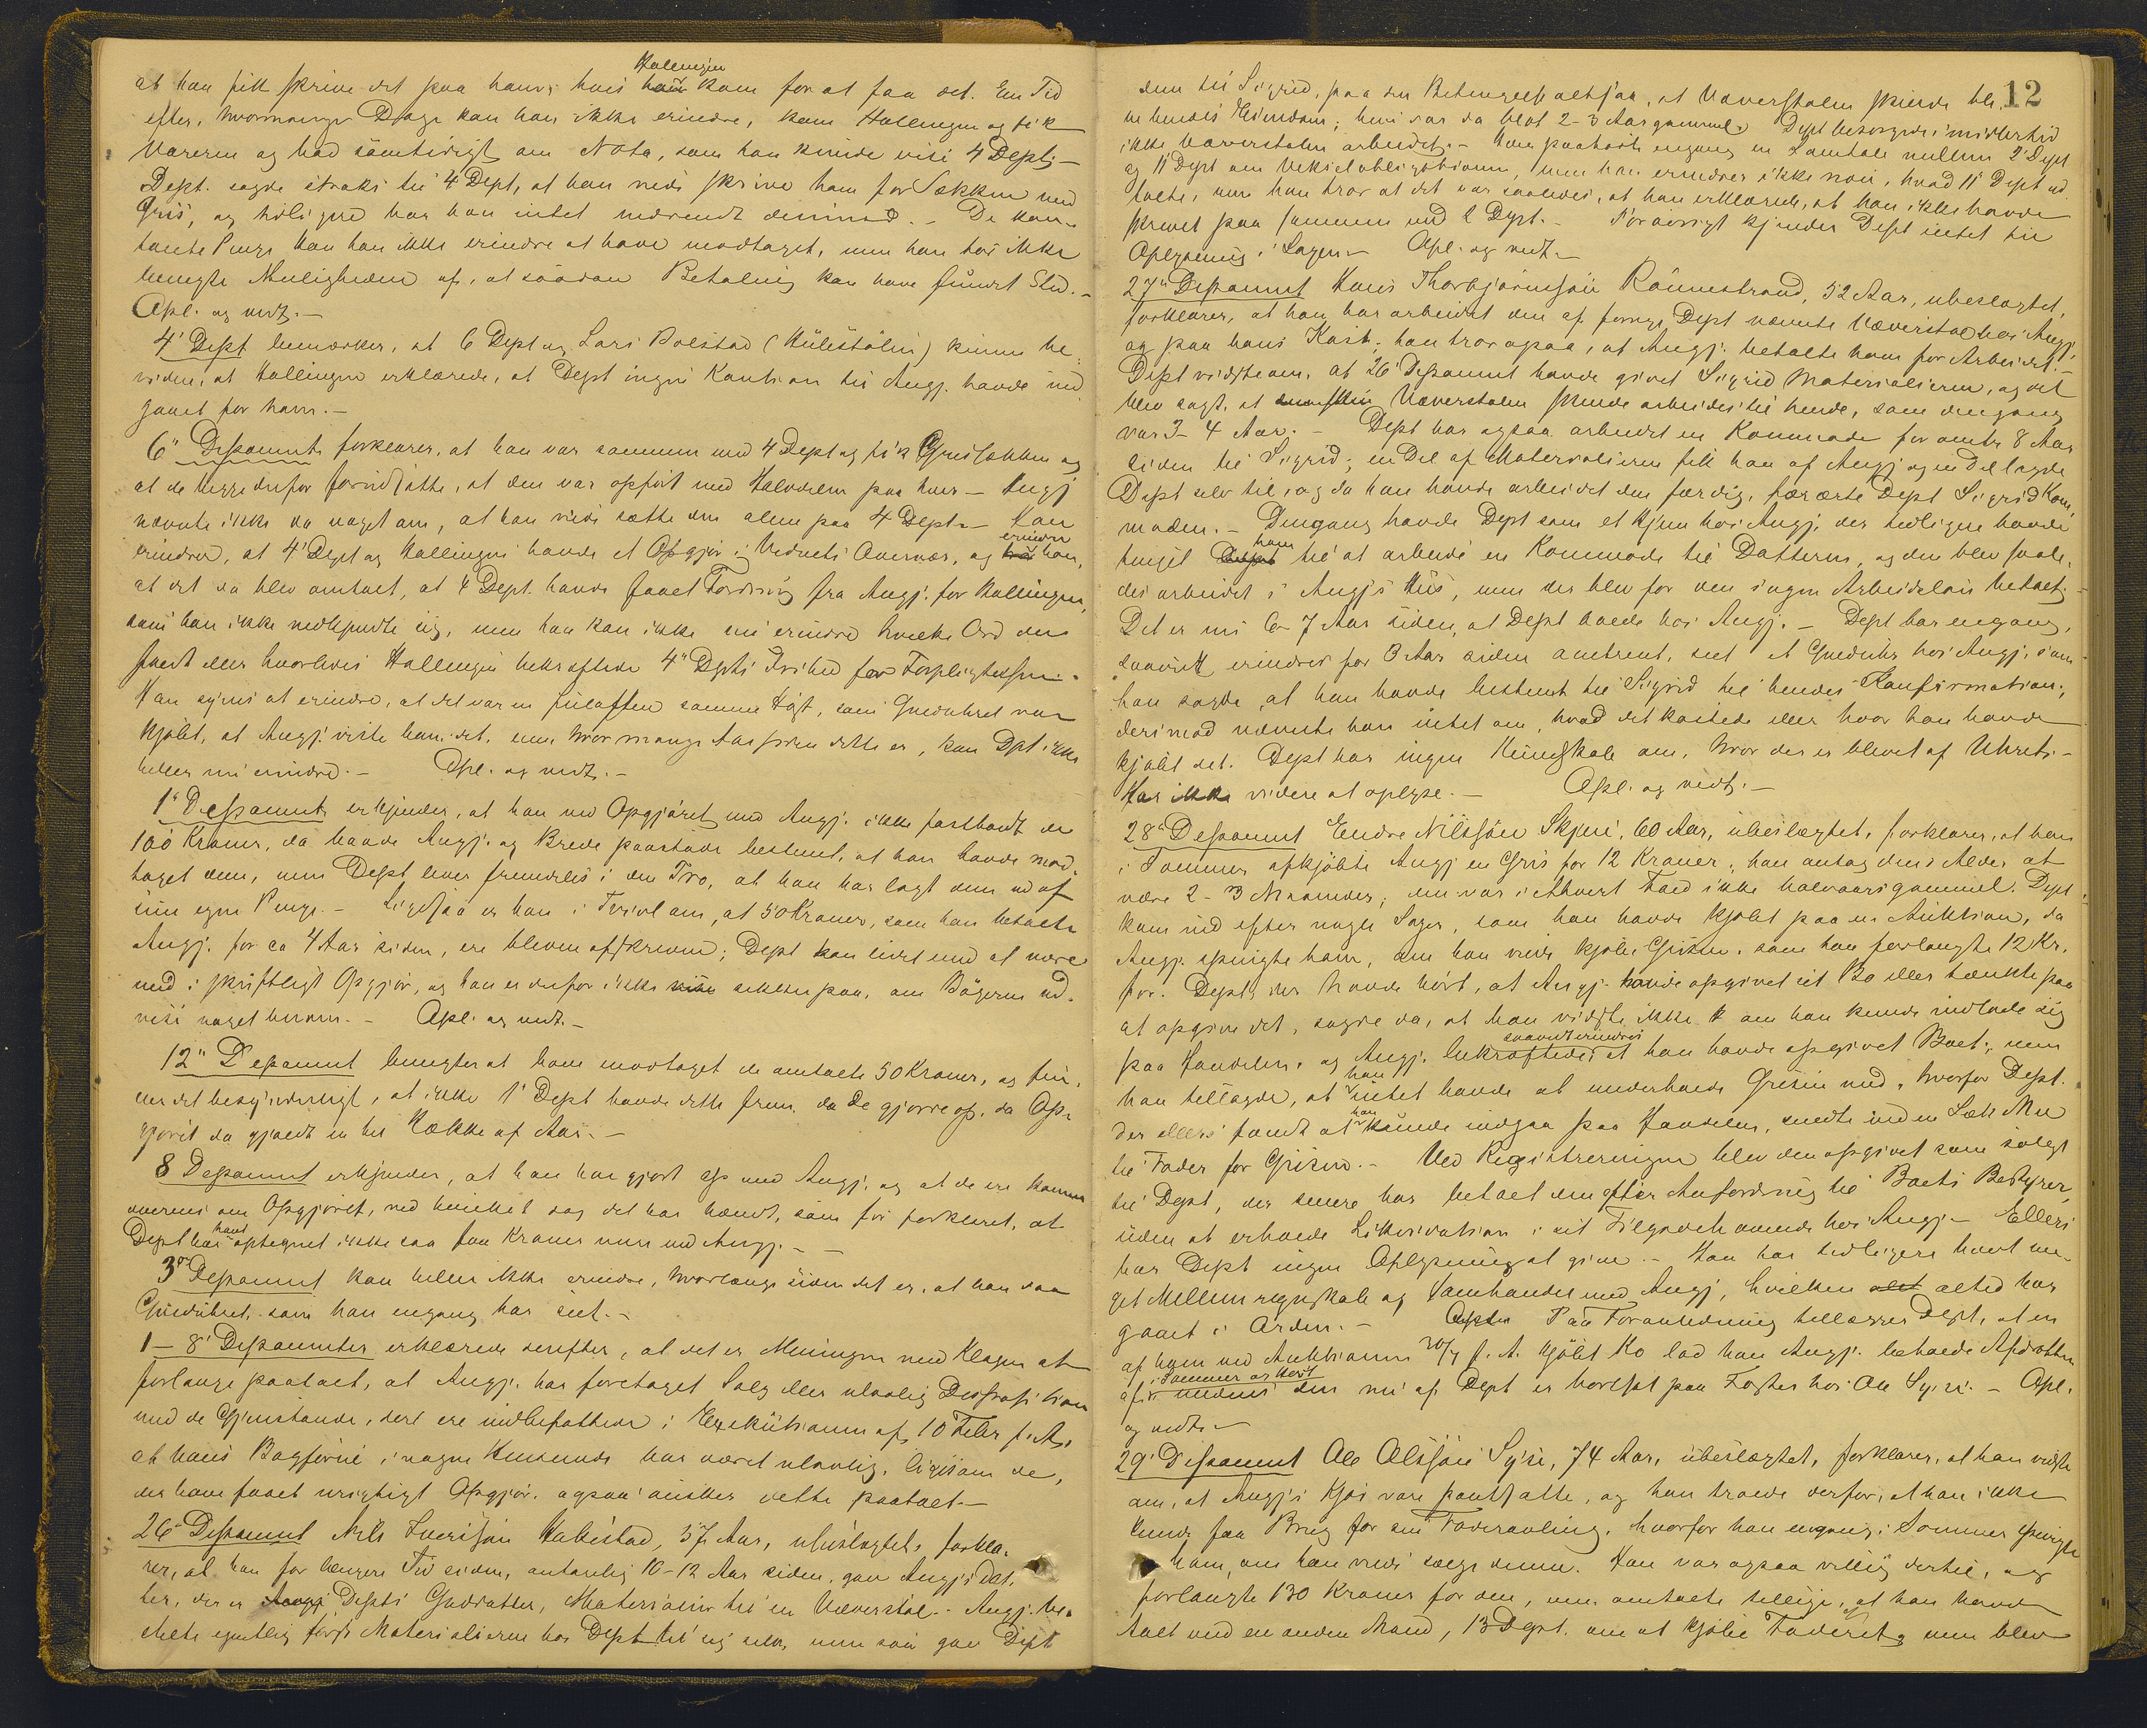 Hallingen
at han fik skrive det paa ham, hvis han kom for at faa det. En Tid
efter, hvormange Dage kan han ikke erindre, kom Hallingen og fik
Varerne og bad samtidigt om Nota, som han kunde vise 4 Dept. –
Dept. sagde straks til 4 Dept, at han vilde skrive ham for Sækken med
Gris, og tidligere har han intet nævnt derimod. – De kon-
tante Penge kan han ikke erindre at have modtaget, men han tør ikke
benegte Muligheden af, at saadan Betaling kan have fundet Sted. –
Opl. og vedt. –
4' Dept bemærker, at 6 Dept og Lars Bolstad (Hulestølen) kunne be-
vidne, at Hallingen erklærede, at Dept ingen Kaution til Angj. havde ind
gaaet for ham. –
6" Deponent forklarer, at han var sammen med 4 Dept og fik Grissækken og
at de begge derfor forudsatte, at den var opført med Halvdelen paa hver – Angj
nævnte ikke da noget om, at han vilde sætte den alene paa 4 Dept. – Han
erindrer
erindrer, at 4' Dept og Hallingen havde et Opgjør i Veduets Overvær, og tror han,
at det da blev omtalt, at 4 Dept. havde faaet Fordring fra Angj. for Hallingen,
som han ikke vedkjendte sig, men han kan ikke nu erindre hvilke Ord der
faldt eller hvorledes Hallingen bekræftede 4" Depts Frihed for Forpligtelsen. –
Han synes at erindre, at det var en Juleaften samme Høst, som Gulduhret var
kjøbt, at Angj. viste ham det, men hvor mange Aar siden dette er, kan Dpt ikke
heller nu erindre. – Opl. og vedt. –
1" Deponent erkjender, at han ved Opgjøret med Angj. ikke fastholdt de
100 Kroner, da baade Angj. og Brede paastode bestemt, at han havde mod-
taget dem, men Dept lever fremdeles i den Tro, at han har lagt dem ud af
sine egne Penge. – Ligesaa er han i Tvivl om, at 50 Kroner, som han betalte
Angj. for ca 4 Aar siden, ere bleven afskrevne; Dept kan lidet med at være
med i skriftligt Opgjør, og han er derfor ikke sikker paa, om Bøgerne ud-
vise noget herom. – Opl. og vedt. –
12" Deponent benegter at have modtaget de omtalte 50 Kroner, og fin-
der det besynderligt, at ikke 1' Dept havde dette frem, da de gjorde op, da Op-
gjøret da gjaldt en hel Række af Aar. –
8 Deponent erkjender, at han har gjort op med Angj. og at de ere komne
overens om Opgjøret, ved hvilket dog det har hændt, som før forklaret, at
havt
Dept har optegnet ikke saa faa Kroner mere end Angj. –
3die Deponent kan heller ikke erindre, hvorlænge siden det er, at han saa
Gulduhret, som han engang har seet. –
1 – 8' Deponenter erklærede derefter, at det er Meningen med Klagen at
forlange paatalt, at Angj. har foretaget Salg eller ulovlig Disposition
med de Gjenstande, der ere indbefattede i Exekutionen af 10 Febr f. A.,
at hans Bogføring i nogen Henseende har været ulovlig, ligesom de,
der have faaet urigtigt Opgjør, ogsaa ønsker dette paatalt. –
26" Deponent Nils Sverssøn Hakestad, 57 Aar, ubeslægtet, forkla-
rer, at han for længere Tid siden, antagelig 10 – 12 Aar siden, gav Angj's Dat-
ter, der er Angj Depts Guddatter, Materialier til en Væverstol. – Angj. be-
stilte egentlig først Materialierne hos Dept til sig selv, men saa gav Dept
12
dem til Sigrid, paa den Betingelse altsaa, at Væverstolen skulde bli-
ve hendes Eiendom; hun var da blot 2–3 Aar gammel. Dept besørgede imidlertid
ikke Væverstolen arbeidet. – Han paahørte engang en Samtale mellem 2' Dept
og 11' Dept om Vekselobligationen, men han erindrer ikke nøie, hvad 11' Dept ud
talte, men han tror at det var saaledes, at han erklærede, at han ikke havde
skrevet paa sammen med 2 Dept. – Forøvrigt kjender Dept intet til
Oplysning i Sagen. – Opl. og vedt. –
27" Deponent Hans Thorbjørnssøn Rønnestrand, 52 Aar, ubeslægtet,
forklarer, at han har arbeidet den af forrige Dept nævnte Væverstol hos Angj.
og paa hans Kost; han tror ogsaa, at Angj. betalte ham for Arbeidet. –
Dept vidste om, at 26' Deponent havde givet Sigrid Materialierne, og det
blev sagt, at Væverstolen skulde arbeides til hende, som dengang
var 3–4 Aar. – Dept har ogsaa arbeidet en Kommode for omtr. 8 Aar
siden til Sigrid; en Del af Materialierne fik han af Angj og en Del lagde
Dept selv til, og da han havde arbeidet den færdig, forærte Dept Sigrid Kom-
moden. – Dengang havde Dept som et Hjem hos Angj. der tidligere havde
ham
tinget Dept til at arbeide en Kommode til Datteren, og den blev saale-
des arbeidet i Angjs Hus, men der blev for den ingen Arbeidsløn betalt. –
Det er nu 6–7 Aar siden, at Dept boede hos Angj. – Dept har engang,
saavidt erindres for 3 Aar siden omtrent, seet et Gulduhr hos Angj., som
han sagde, at han havde bestemt til Sigrid til hendes Konfirmation;
derimod nævnte han intet om, hvad det kostede eller hvor han havde
kjøbt det. Dept har ingen Kundskab om, hvor der er blevet af Uhret. –
Har ikke videre at oplyse. – Opl. og vedt. –
28" Deponent Endre Nilssøn Skjeri, 60 Aar, ubeslægtet, forklarer, at han
i Sommer afkjøbte Angj en Gris for 12 Kroner; han antog dens Alder at
være 2–3 Maaneder; den var i ethvert Fald ikke halvaarsgammel. Dept
kom ned efter nogle Sager, som han havde kjøbt paa en Auktion, da
Angj. spurgte ham, om han vilde kjøbe Grisen, som han forlangte 12 Kr.
for. Dept, der havde hørt, at Angj. havde opgivet sit Bo eller tænkte paa
at opgive det, sagde da, at han vidste ikke om han kunde indlade sig
saavidt erindres
paa Handelen, og Angj. bekræftede, at han havde opgivet Boet; men
han
han tillagde, at intet havde at underholde Grisen med, hvorfor Dept.
han
der ellers fandt at kunde indgaa paa Handelen, sendte ind en Sæk Mel
til Foder for Grisen. – Ved Registreringen blev den opgivet som solgt
til Dept, der senere har betalt den efter Anfordring til Boets Bestyrer,
uden at erholde Likvidation i sit Tilgodehavende hos Angj. – Ellers
har Dept ingen Oplysning at give. – Han har tidligere havt me-
get Mellemregnskab og Samhandel med Angj, hvilken altid har
gaaet i Orden. – Paa Foranledning tillægger Dept, at en
af ham ved Auktionen 30/9 f. A. kjøbt Ko lod han Angj. beholde Afdrotten
i Sommer og Høst
af den nu af Dept er bortsat paa Foster hos Ole Syse. – Opl.
og vedt. –
29' Deponent Ole Olssøn Syse, 74 Aar, ubeslægtet, forklarer, at han vidste
om, at Angj's Kjør vare pantsatte, og han troede derfor, at han ikke
kunde faa Brug for sin Foderavling, hvorfor han engang i Sommer spurgte
ham, om han vilde sælge denne. Han var ogsaa villig dertil, og
forlangte 130 Kroner for den, men omtalte tillige, at han havde
talt med en anden Mand, 13 Dept. om at kjøbe Foderet, men blev